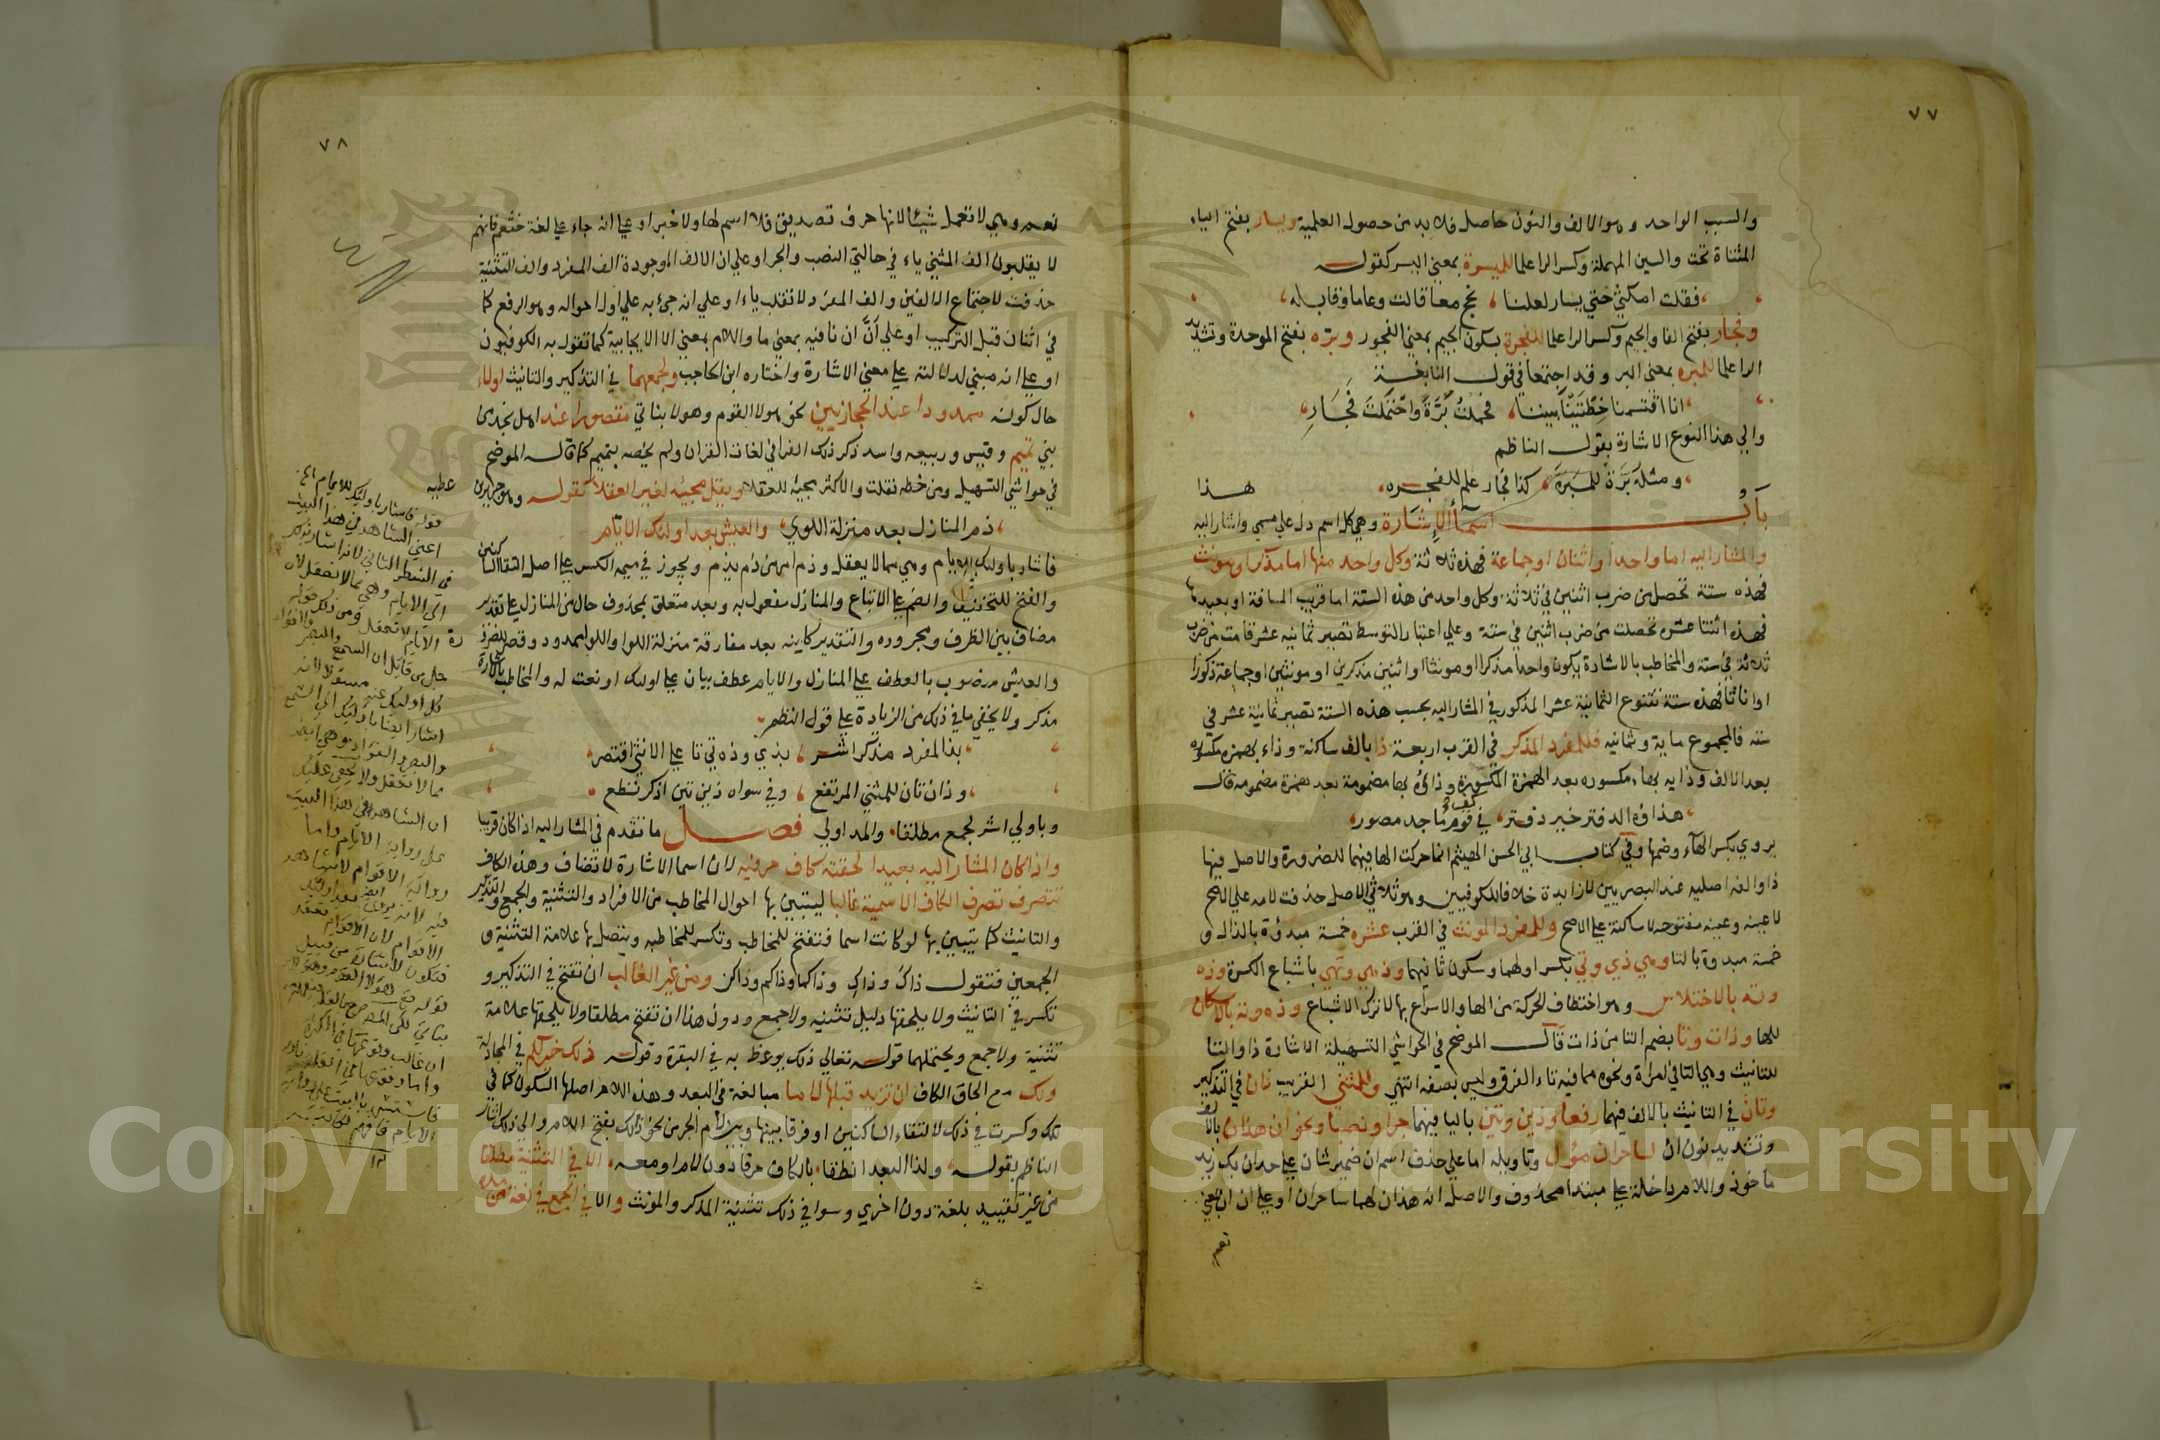 ٧٧
والسبب الواحد وهو الالف والنون حاصل فلا بد من حصول العلمية ويسار بفتح الياء
المثناة تحت والسين المهملة وكسر الرا علما للميسرة بمعني اليسر كقوله
فقلت امكثي حتي يسار لعلنا نحج معا قالت وعاما وقابله
وفجار بفتح الفا والجيم وكسر الرا علما للفجرة بسكون الجيم بمعني الفجور وبره بفتح الموحدة وتشديد
الرا علما للمبره بمعني البر وقد اجتمعا في قول النابغة
انا اقتسمنا خطتينا بيننا فحملت برة واحتملت فجار
والي هذا النوع الاشارة بقول الناظم
ومثله برة للمبرة كذا فجار علم للفجره هذا
باب اسماء الاشارة وهي كل اسم دل علي مسمي واشارة اليه
والمشار اليه اما واحد او اثنان او جماعة فهذه ثلاثة وكل واحد منها اما مذكر او مونث
فهذه ستة تحصل من ضرب اثنين في ثلاثة وكل واحد من هذه الستة اما قريب المسافة او بعيدها
فهذه اثنتا عشره تحصلت من ضرب اثنين في ستة وعلي اعتبار التوسط تصير ثمانيه عشر قامت من ضرب
ثلاثة في ستة والمخاطب بالاشارة يكون واحدا مذكرا او مونثا او اثنين مذكرين او مونثين او جماعة ذكورا
او اناثا فهذه ستة تتنوع الثمانية عشر المذكور في المشار اليه بحسب هذه الستة تصير ثمانية عشر في
سته فالمجموع ماية وثمانيه فللمفرد المذكر في القرب اربعة ذا بالف ساكنة وذاء بهمزه مكسوره
بعد الالف وذايه بها مكسوره بعد الهمزة المكسورة وذاؤه بها مضمومة بعد همزة مضمومه قال
هذاؤه الدفتر خير دفتر في كف قرم ماجد مصور
يروي بكسر الهاء وضمها وفي كتاب ابي الحسن الهيثم انما حركت الها فيهما للضرورة والاصل فيها
ذا والفه اصليه عند البصريين لا زايدة خلافا للكوفيين وهو ثلاثي الاصل حذفت لامه علي الاصح
لا عينه وعينه مفتوحه لا ساكنة علي الاصح وللمفرد المونث في القرب عشره خمسة مبدؤة بالذال و
خمسة مبدوة بالتا وهي ذي وتي بكسر اولهما وسكون ثانيهما وذهي وتهي باشباع الكسرة وذه
وته بالاختلاس وهو اختطاف الحركة من الها والاسراع بها لا ترك الاشباع وذه وته بالاسكان
للها وذات وتا بضم التا من ذات قال الموضح في الحواشي التسهيلة الاشارة ذا والتا
للتانيث وهي التا في امراة ونحوه مما فيه تاء الفرق وليس بصفه انتهي وللمثني القريب ذان في التذكير
وتان في التانيث بالالف فيهما رفعا وذين وتين باليا فيهما جرا ونصبا ونحو ان هذان بالالف
وتشديد نون ان لساحران مؤول وتاويله اما علي حذف اسم ان ضمير شان علي حد ان بك زيد
ماخوذ واللام داخلة علي مبتدا محذوف والاصل انه هذان لهما ساحران او علي ان ان بمعني
نعم
٧٨
نعم وهي لا تعمل شيئا لانها حرف تصديق فلا اسم لها ولا خبر او علي انه جاء علي لغة خثعم فانهم
لا يقلبون الف المثني ياء في حالتي النصب والجر او علي ان الالف الموجودة الف المفرد والف التثنية
حذفت لاجتماع الالفين والف المفرد لا تقلب ياء او علي انه جئ به علي اول احواله وهو الرفع كما
في اثنان قبل التركيب او علي ان ان نافيه بمعني ما واللام بمعني الا الايجابية كما تقول به الكوفيون
او علي انه مبني لدلالته علي معني الاشارة واختاره ابن الحاجب ولجمعهما في التذكير والتانيث اولاء
حال كونه ممدودا عند الحجازيين نحو هولا القوم وهولا بناتي مقصورا عند اهل نجد من
بني تميم وقيس وربيعه واسد ذكر ذلك الفرا في لغات القران ولم يخصه بتميم كما قاله الموضح
في حواشي التسهيل ومن خطه نقلت والاكثر مجيئه للعقلا ويقل مجيئه لغير العقلا كقوله وهو جرير
ذم المنازل بعد منزلة اللوي والعيش بعد اولئك الايام
فاشار باولئك للايام وهي مما لا يعقل وذم امر من ذم يذم ويجوز في ميمه الكسر علي اصل التقا الساكنين
والفتح للتخفيف والضم علي الاتباع والمنازل مفعول به وبعد متعلق بمحذوف حال من المنازل علي تقدير
مضاف بين الظرف ومجروره والتقدير كاينه بعد مفارقة منزلة اللوا واللوا ممدود وقصر للضرورة
والعيش منصوب بالعطف علي المنازل والايام عطف بيان علي اولئك او نعت له والمخاطب بالاشارة
مذكر ولا يخفي ما في ذلك من الزيادة علي قول النظم
بذا لمفرد مذكر اشر بذي وذه تي تا علي الانثي اقتصر
وذان تان للمثني المرتفع وفي سواه ذين تين اذكر تطع
وباولي اشر لجمع مطلقا والمد اولي فصل ما تقدم في المشار اليه اذا كان قريبا
واذا كان المشار اليه بعيدا لحقته كاف حرفيه لان اسما الاشارة لا تضاف وهذه الكاف
تتصرف تصرف الكاف الاسمية غالبا ليتبين بها احوال المخاطب من الافراد والتثنية والجمع والتذكير
والتانيث كما يتبين بها لو كانت اسما فتفتح للمخاطب وتكسر للمخاطبه ويتصل بها علامة التثنية و
الجمعين فتقول ذاك وذاك وذاكما وذاكم وذاكن ومن غير الغالب ان تفتح في التذكير و
تكسر في التانيث ولا يلحقها دليل تثنيه ولا جمع ودون هذا ان تفتح مطلقا ولا يلحقها علامة
تثنية ولا جمع ويحتملهما قوله تعالي ذلك يوعظ به في البقرة وقوله ذلك خير لكم في المجادلة
ولك مع الحاق الكاف ان تزيد قبلها لاما مبالغة في البعد وهذه اللام اصلها السكون كما في
تلك وكسرت في ذلك لالتقاء الساكنين او فرقا بينها وبين لام الجر من نحو ذالك بفتح اللام والي ذلك اشار
الناظم بقوله ولذا البعد انطقا بالكاف حرفا دون لام او معه الا في التثنية مطلقا
من غير تقييد بلغة دون اخري وسوا في ذلك تثنية المذكر والمونث والا في الجمع في لغة من مده
قوله فاشار باولئك للايام الخ
اعني الشاهد في هذا البيت
في الشطر الثاني لانه اشار
الي الايام وهي مما لا تعقل لان
الايام لا تعقل ومن ذلك قوله
جل من قايل ان السمع والبصر والفؤاد
كل اولئك كان عنه مسؤلا لانه
اشار ايضا باولئك الي السمع
والبصر والفؤاد وهي ايضا
مما لا تعقل ولا يخفي عليك
ان الشاهد في هذا البيت
علي رواية الايام واما
رواية الاقوام لا شاهد
فيه
Copyright © King Saud University